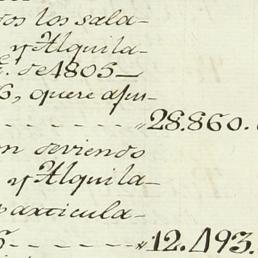 dos los sala-
y Alquila-
de 1805-
6, quere afu-
28.860.
on deviendo
y Alquila-
particula-
12.493.